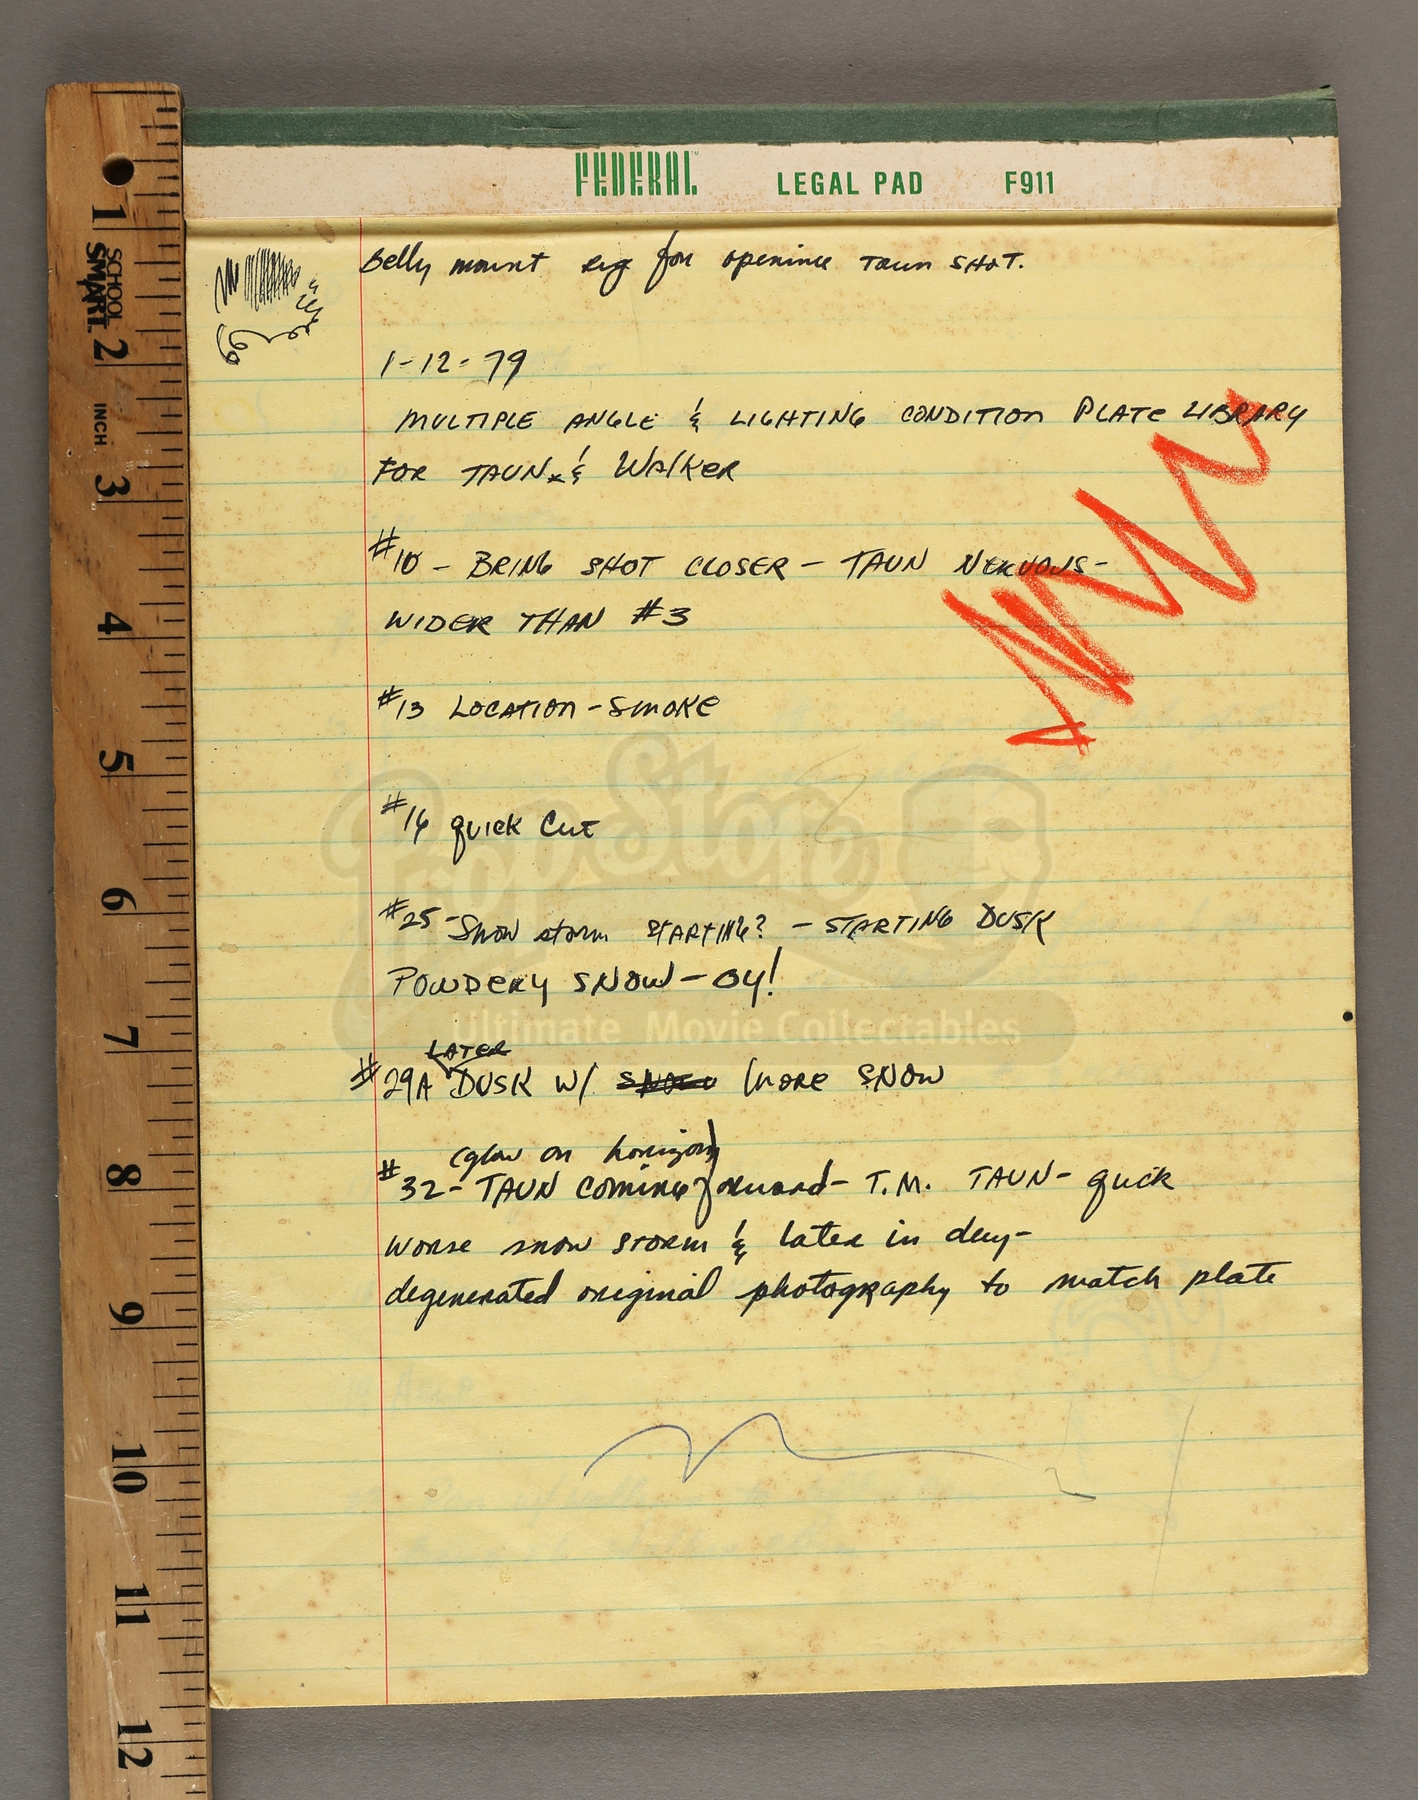 FEDERAL™ LEGAL PAD F911
Belly mount rig for opening Taun SHOT.
1-12-79
MULTIPLE ANGLE & LIGHTING CONDITION PLATE LIBRARY
FOR TAUN & WALKER
#10 - BRING SHOT CLOSER - TAUN NERVOUS -
WIDER THAN #3
#13 LOCATION - SMOKE
#16 QUICK CUT
#25 - Snow storm STARTING? - STARTING DUSK
POWDERY SNOW - OY!
LATER
#29A DUSK W/ MORE SNOW
(glow on horizon)
#32 - TAUN COMING forward - T.M. TAUN - quick
WORSE snow STORM & later in day -
degenerated original photography to match plate
SCHOOL SMART.
INCH
1
2
3
4
5
6
7
8
9
10
11
12
Prop Store
Ultimate Movie Collectables